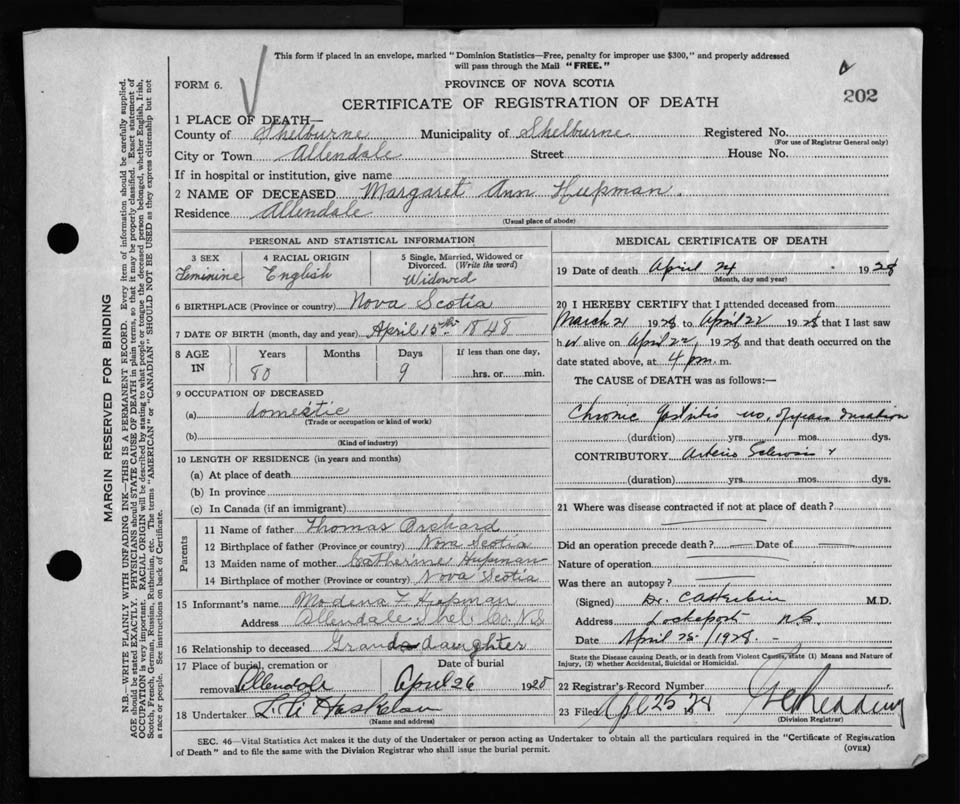 This form if placed in an envelope, marked "Dominion Statistics—Free, penalty for improper use $300," and properly addressed
will pass through the Mail "FREE."
FORM 6.
PROVINCE OF NOVA SCOTIA
202
CERTIFICATE OF REGISTRATION OF DEATH
1 PLACE OF DEATH—
County of Shelburne Municipality of Shelburne Registered No.
(For use of Registrar General only)
City or Town Allendale Street House No.
If in hospital or institution, give name
2 NAME OF DECEASED Margaret Ann Hupman.
Residence Allendale
(Usual place of abode)
PERSONAL AND STATISTICAL INFORMATION
3 SEX 4 RACIAL ORIGIN 5 Single, Married, Widowed or
Divorced. (Write the word)
Feminine English Widowed
6 BIRTHPLACE (Province or country) Nova Scotia
7 DATE OF BIRTH (month, day and year) April 15th 1848
8 AGE IN Years Months Days If less than one day,
80 9 hrs. or min.
9 OCCUPATION OF DECEASED
(a) domestic
(Trade or occupation or kind of work)
(b)
(Kind of industry)
10 LENGTH OF RESIDENCE (in years and months)
(a) At place of death
(b) In province
(c) In Canada (if an immigrant)
Parents
11 Name of father Thomas Orchard
12 Birthplace of father (Province or country) Nova Scotia
13 Maiden name of mother Catherine Hupman
14 Birthplace of mother (Province or country) Nova Scotia
15 Informant's name Modena Hupman
Address Allendale Shel. Co. N.S
16 Relationship to deceased Grand daughter
17 Place of burial, cremation or Date of burial
removal Allendale April 26 1928
18 Undertaker
(Name and address)
MEDICAL CERTIFICATE OF DEATH
19 Date of death April 24 1928
(Month, day and year)
20 I HEREBY CERTIFY that I attended deceased from
March 21 1928 to April 22 1928 that I last saw
her alive on April 22, 1928 and that death occurred on the
date stated above, at 4 pm. m.
The CAUSE of DEATH was as follows:—
Chronic Gastritis no. of years duration
(duration) yrs. mos. dys.
CONTRIBUTORY Arterio Sclerosis
(duration) yrs. mos. dys.
21 Where was disease contracted if not at place of death?
Did an operation precede death? — Date of —
Nature of operation
Was there an autopsy?
(Signed) Dr. M.D.
Address Lockeport N.S.
Date April 25/1928.
State the Disease causing Death, or in death from Violent Causes, state (1) Means and Nature of
Injury, (2) whether Accidental, Suicidal or Homicidal.
22 Registrar's Record Number
23 Filed Apl 25 28
(Division Registrar)
SEC. 46—Vital Statistics Act makes it the duty of the Undertaker or person acting as Undertaker to obtain all the particulars required in the "Certificate of Registration
of Death" and to file the same with the Division Registrar who shall issue the burial permit.
(OVER)
MARGIN RESERVED FOR BINDING
N.B.—WRITE PLAINLY WITH UNFADING INK—THIS IS A PERMANENT RECORD. Every item of information should be carefully supplied.
AGE should be stated EXACTLY. PHYSICIANS should STATE CAUSE OF DEATH in plain terms, so that it may be properly classified. Exact statement of
OCCUPATION is very important. RACIAL ORIGIN will be described by stating to what people or tongue the deceased person belonged, whether English, Irish,
Scotch, French, German, Russian, Ruthenian, etc. The terms "AMERICAN" or "CANADIAN" SHOULD NOT BE USED as they express citizenship but not
a race or people. See instructions on back of Certificate.